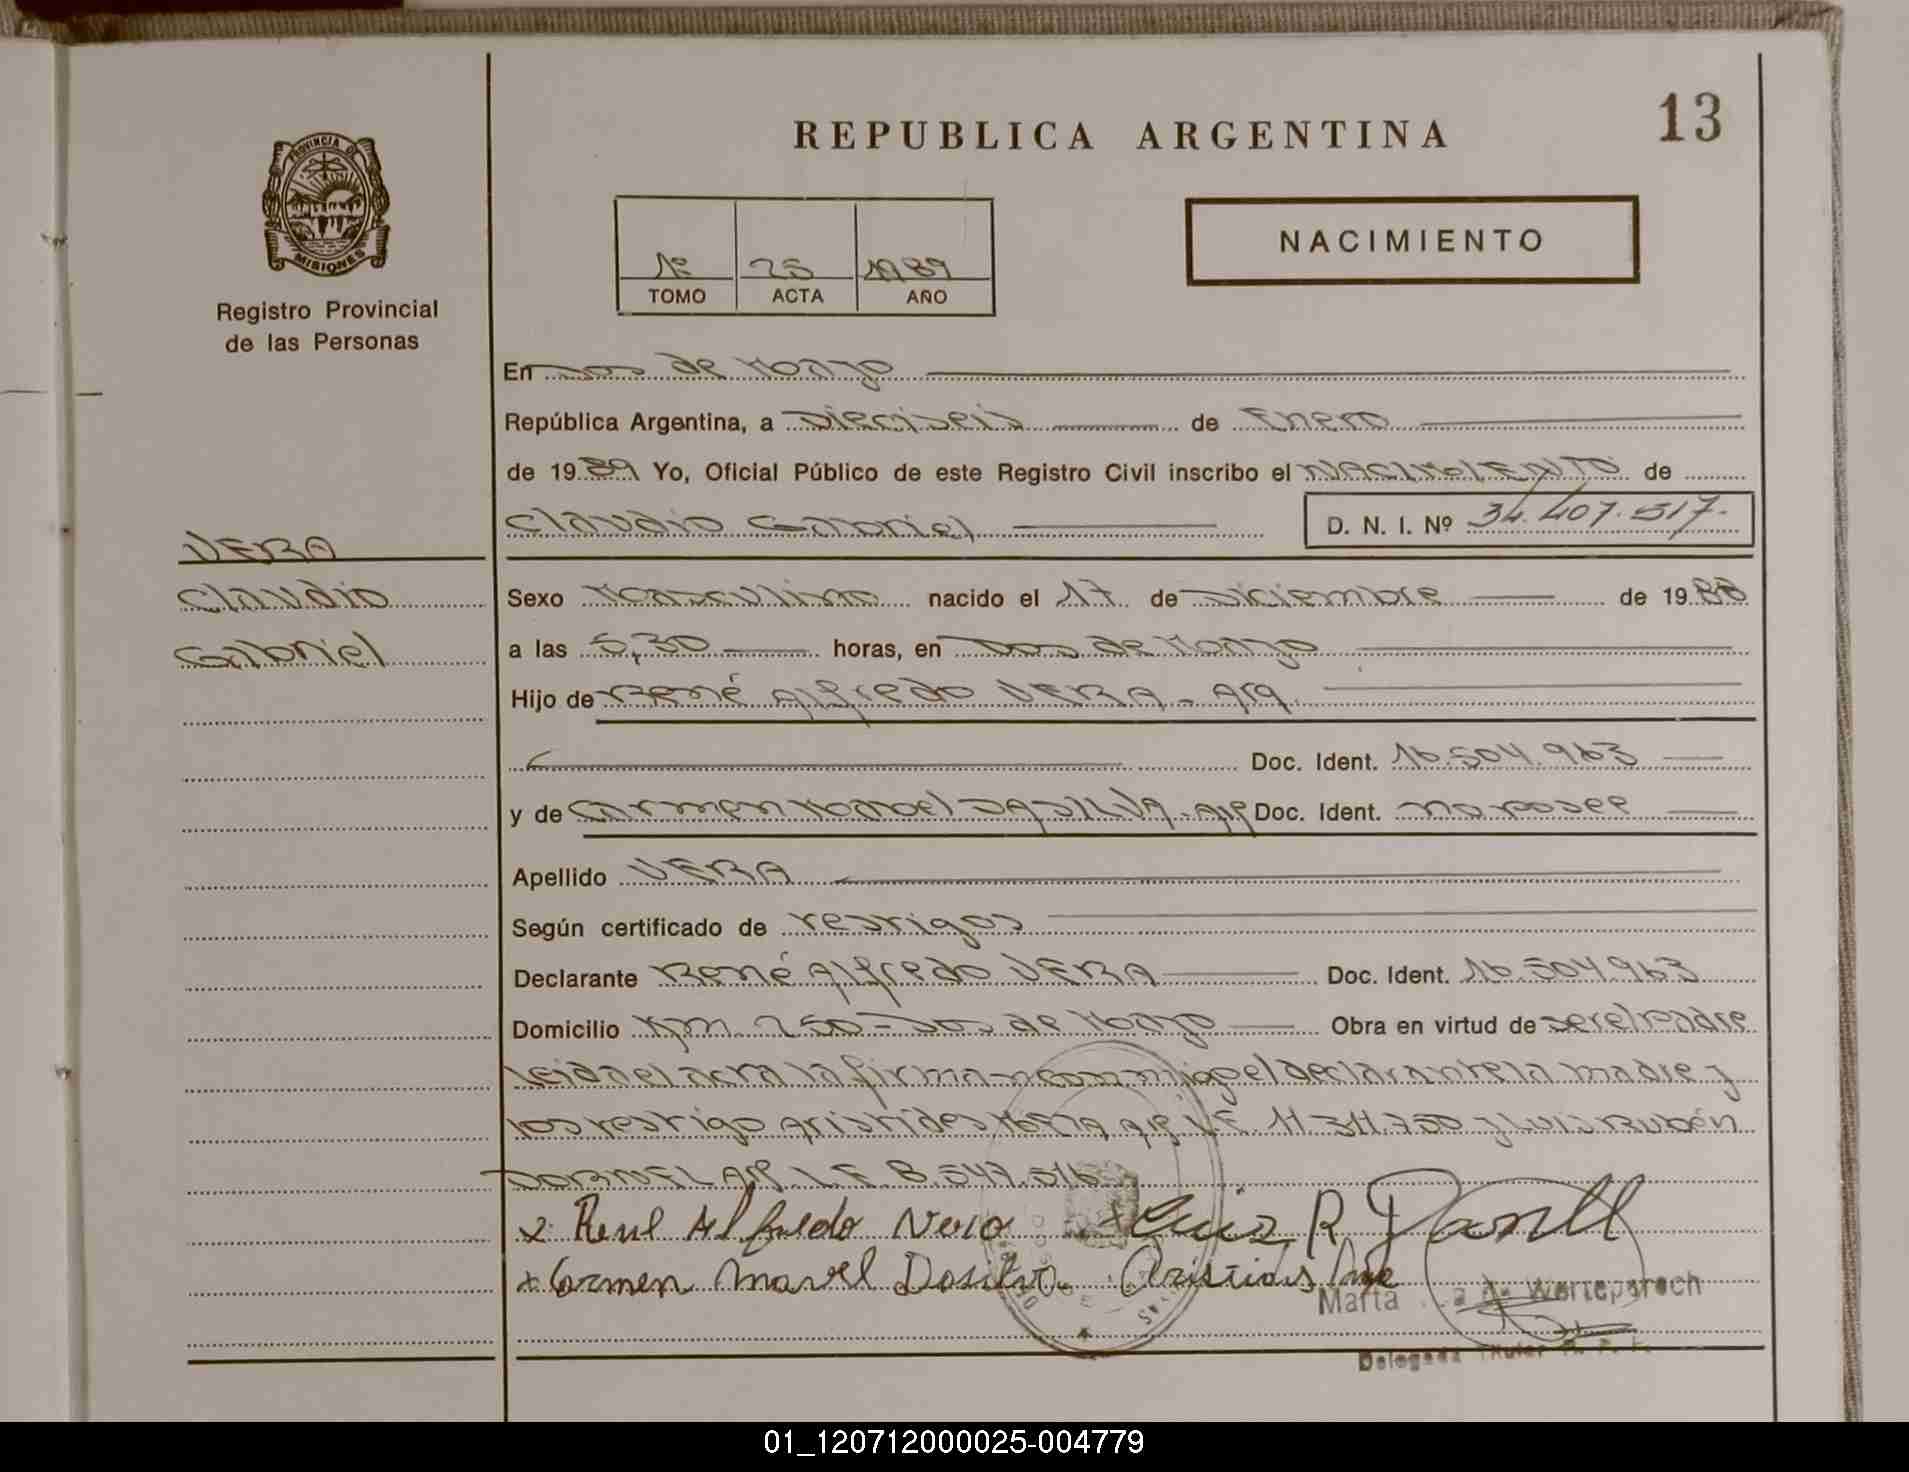 13
REPUBLICA ARGENTINA
PROVINCIA DE
MISIONES
Registro Provincial
de las Personas
1º 25 1989
TOMO ACTA AÑO
NACIMIENTO
En Dos de Mayo
República Argentina, a Dieciseis de Enero
de 1989 Yo, Oficial Público de este Registro Civil inscribo el NACIMIENTO de
Claudio Gabriel D. N. I. Nº 34.407.517.
VERA
Claudio
Gabriel
Sexo Masculino nacido el 17 de Diciembre de 1988
a las 5,30 horas, en Dos de Mayo
Hijo de René Alfredo VERA - Arg.
Doc. Ident. 16.504.963
y de Carmen Mabel DASILVA - Arg Doc. Ident. no posee
Apellido VERA
Según certificado de testigos
Declarante René Alfredo VERA Doc. Ident. 16.504.963
Domicilio Km 250 - Dos de Mayo Obra en virtud de ser el Padre
Leida el acta la firman conmigo el declarante la madre y
los testigo Aristides Arg L.E. 11.311.750 y Luis Rubén
Arg. L.E. 8.547.516
x René Alfredo Vera + Luis R
+ Carmen Mavel Dasilva Aristides
Marta A. Werteparoch
Delegada Titular R. P. P.
01_120712000025-004779